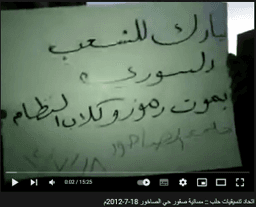 نبارك للشعب
السوري
بموت رموز وكلاب النظام
0:02 / 15:25
اتحاد تنسيقيات حلب :: مسائية صقور حي الصاخور 18-7-2012م